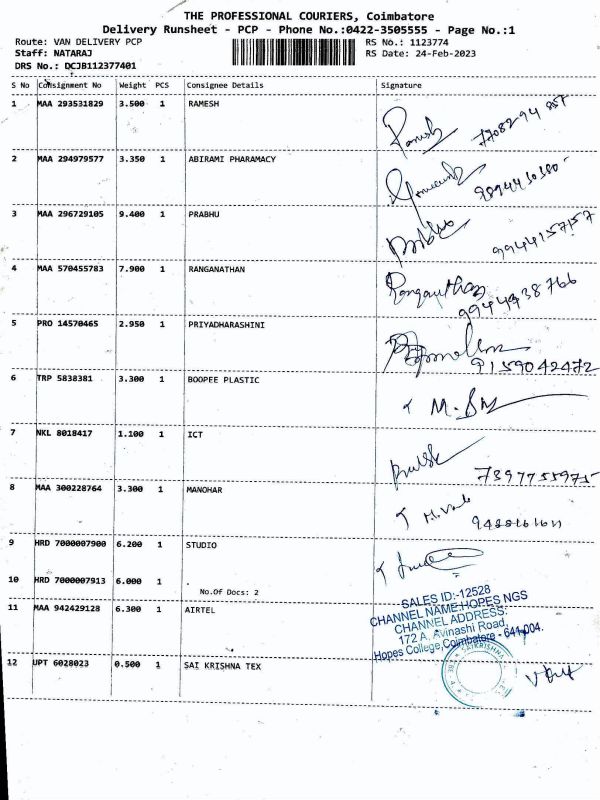 THE PROFESSIONAL COURIERS, Coimbatore
Delivery Runsheet - PCP - Phone No.:0422-3505555 - Page No.:1
Route: VAN DELIVERY PCP RS No.: 1123774
Staff: NATARAJ RS Date: 24-Feb-2023
DRS No.: DCJB112377401
S No Consignment No Weight PCS Consignee Details Signature
1 MAA 293531829 3.500 1 RAMESH
2 MAA 294979577 3.350 1 ABIRAMI PHARAMACY
3 MAA 296729105 9.400 1 PRABHU
9944157157
4 MAA 570455783 7.900 1 RANGANATHAN
Ranganathan
5 PRO 14570465 2.950 1 PRIYADHARASHINI
9159042472
6 TRP 5838381 3.300 1 BOOPEE PLASTIC
7 NKL 8018417 1.100 1 ICT
7397755975
8 MAA 300228764 3.300 1 MANOHAR
9 HRD 7000007900 6.200 1 STUDIO
10 HRD 7000007913 6.000 1
No.Of Docs: 2
11 MAA 942429128 6.300 1 AIRTEL
SALES ID:-12528
CHANNEL NAME:HOPES NGS
CHANNEL ADDRESS:
172 A, Avinashi Road,
Hopes College,Coimbatore - 641004.
12 UPT 6028023 0.500 1 SAI KRISHNA TEX